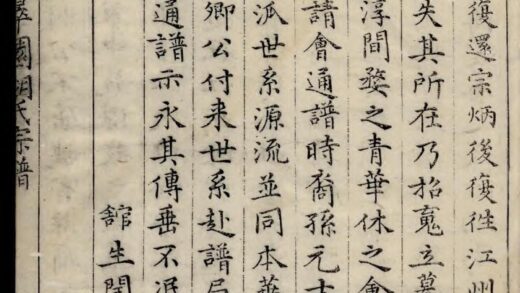 復還宗炳後復徃江州
失其所在乃招䰟立墓
淳間婺之青華休之會
請會通譜時裔孫元
派世系源流並同本
卿公付来世系赴譜局
通譜示永其傳垂不泯
舘生
園胡氏宗譜